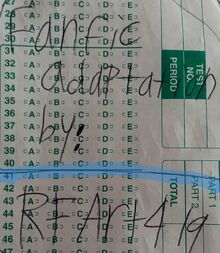 Fanfic
adaptation
by:
TEST NO.
PERIOD
PART 1
PART 2
TOTAL
31 A B C D E
32 A B C D E
33 A B C D E
34 A B C D E
35 A B C D E
36 A B C D E
37 A B C D E
38 A B C D E
39 A B C D E
40 A B C D E
41 A B C D E
42 A B C D E
43 A B C D E
44 A B C D E
45 A B C D E
46 A B C D E
47 A B C D E